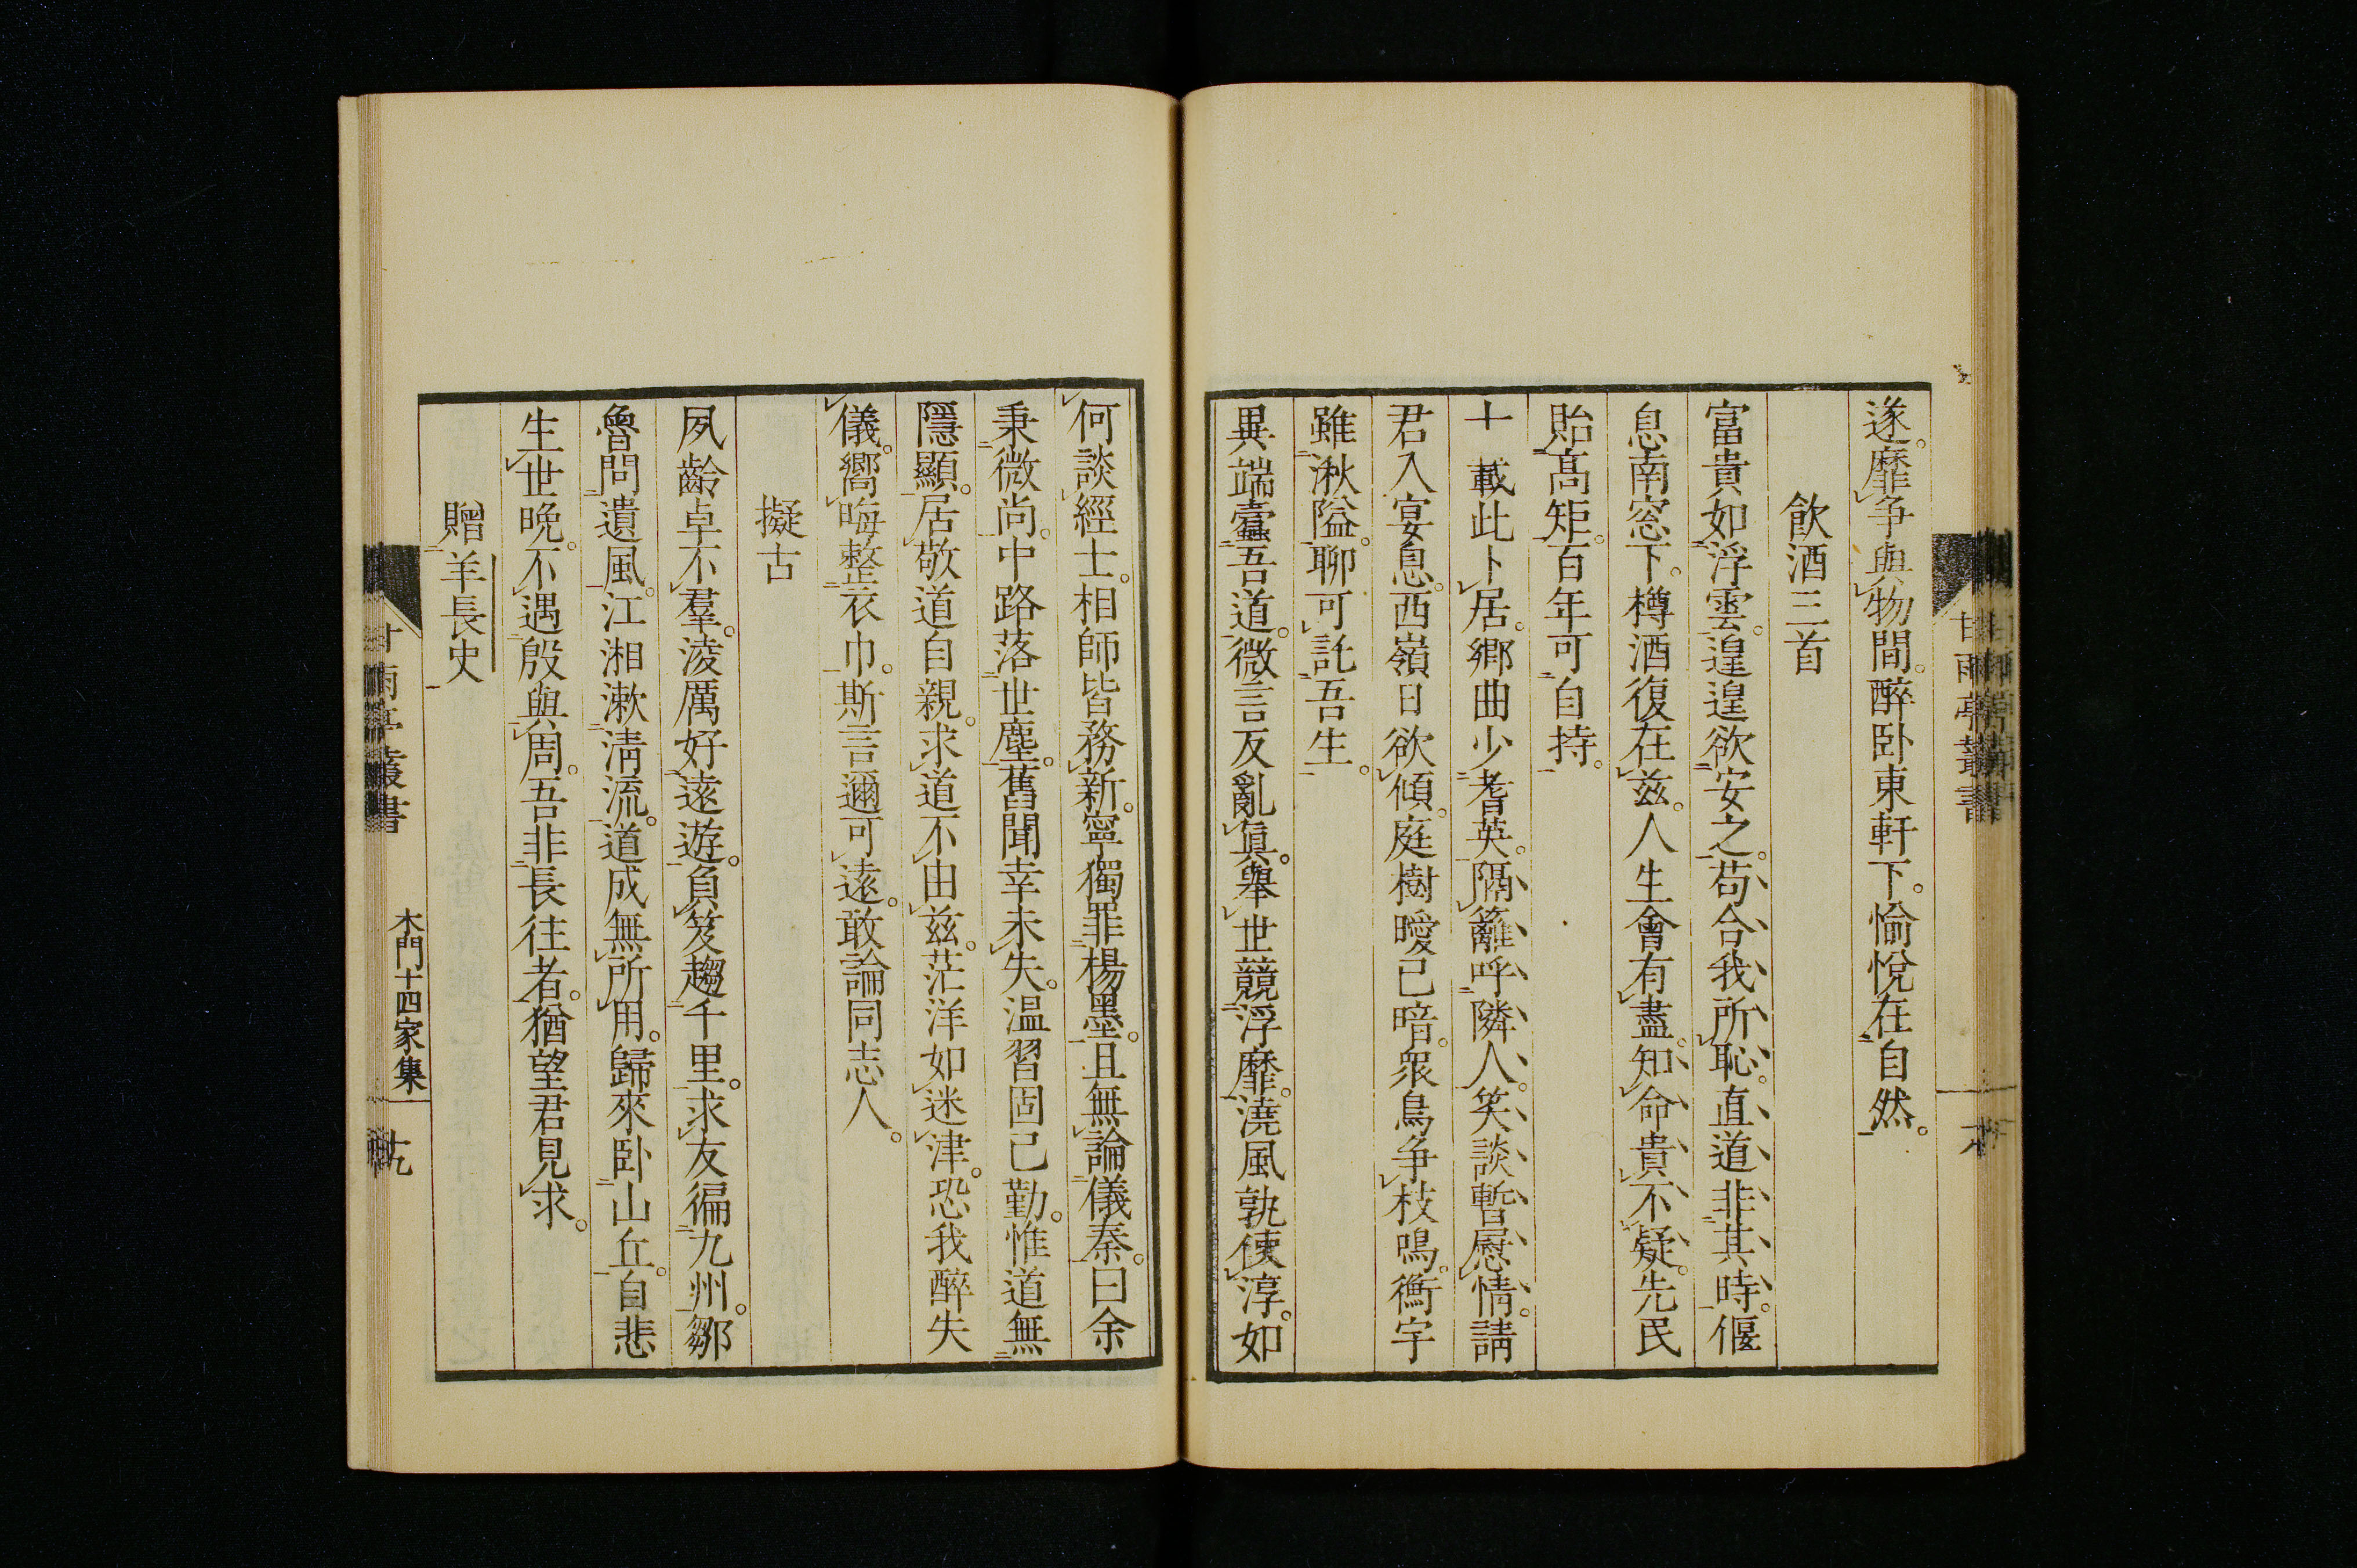 遂。靡争與物間。醉卧東軒下。愉悅在自然。
飲酒三首
富貴如浮雲。遑遑欲安之。苟合我所恥。直道非其時。偃
息南窓下。樽酒復在玆。人生會有盡。知命貴不疑。先民
貽高矩。百年可自持。
十載此卜居。鄉曲少耆英。隔籬呼隣人。笑談暫慰情。請
君入宴息。西嶺日欲傾。庭樹曖已暗。衆鳥争枝鳴。衡宇
雖湫隘。聊可託吾生。
異端蠹吾道。微言反亂眞。舉世競浮靡。澆風孰使淳。如
何談經士。相師皆務新。寧獨罪楊墨。且無論儀秦。曰余
秉微尚。中路落世塵。舊聞幸未失。温習固已勤。惟道無
隱顯。居敬道自親。求道不由玆。茫洋如迷津。恐我醉失
儀。嚮晦整衣巾。斯言邇可遠。敢論同志人。
擬古
夙齡卓不羣。淩厲好遠遊。負笈趨千里。求友徧九州。鄒
魯問遺風。江湘漱淸流。道成無所用。歸來卧山丘。自悲
生世晩。不遇殷與周。吾非長往者。猶望君見求。
贈羊長史
甘雨亭叢書
木門十四家集
十九
甘雨亭叢書